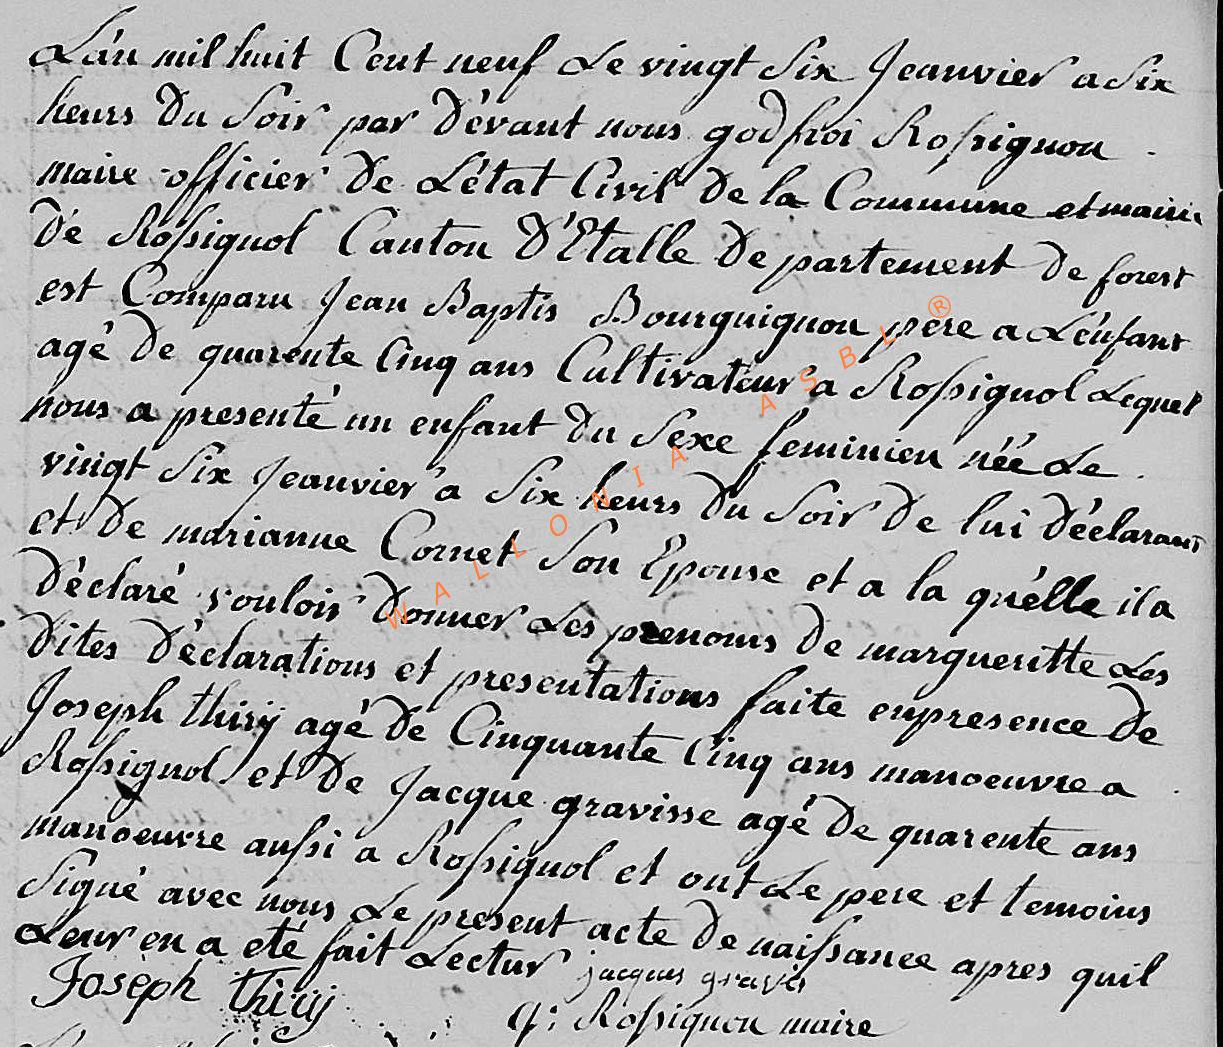 L'an mil huit Cent neuf Le vingt Six Jeanvier a Six
heurs du Soir par d'évant nous godfroi Rossignon
maire officier de L'état Civil de la Commune et mairie
dé Rossignol Canton d'Etalle departement de forest
est Comparu Jean Baptis Bourguignon pere a L'enfant
agé de quarente Cinq ans Cultivateur a Rossignol Lequel
nous a presenté un enfant du Sexe feminien née Le
vingt Six Jeanvier a Six heurs du Soir de lui déclarant
et de marianne Cornet Son Epouse et a la quélle il a
déclaré vouloir donner Les prenoms de margueritte Les
dites déclarations et presentations faite enpresence de
Joseph thirÿ agé de Cinquante Cinq ans manoeuvre a
Rossignol et de Jacque gravisse agé de quarente ans
manoeuvre aussi a Rossignol et ont Le pere et temoins
Signé avec nous Le present acte de naissance apres quil
Leur en a eté fait Lectur jacques gravis
Joseph Thirÿ
G: Rossignon maire
WALLONIA ASBL ®